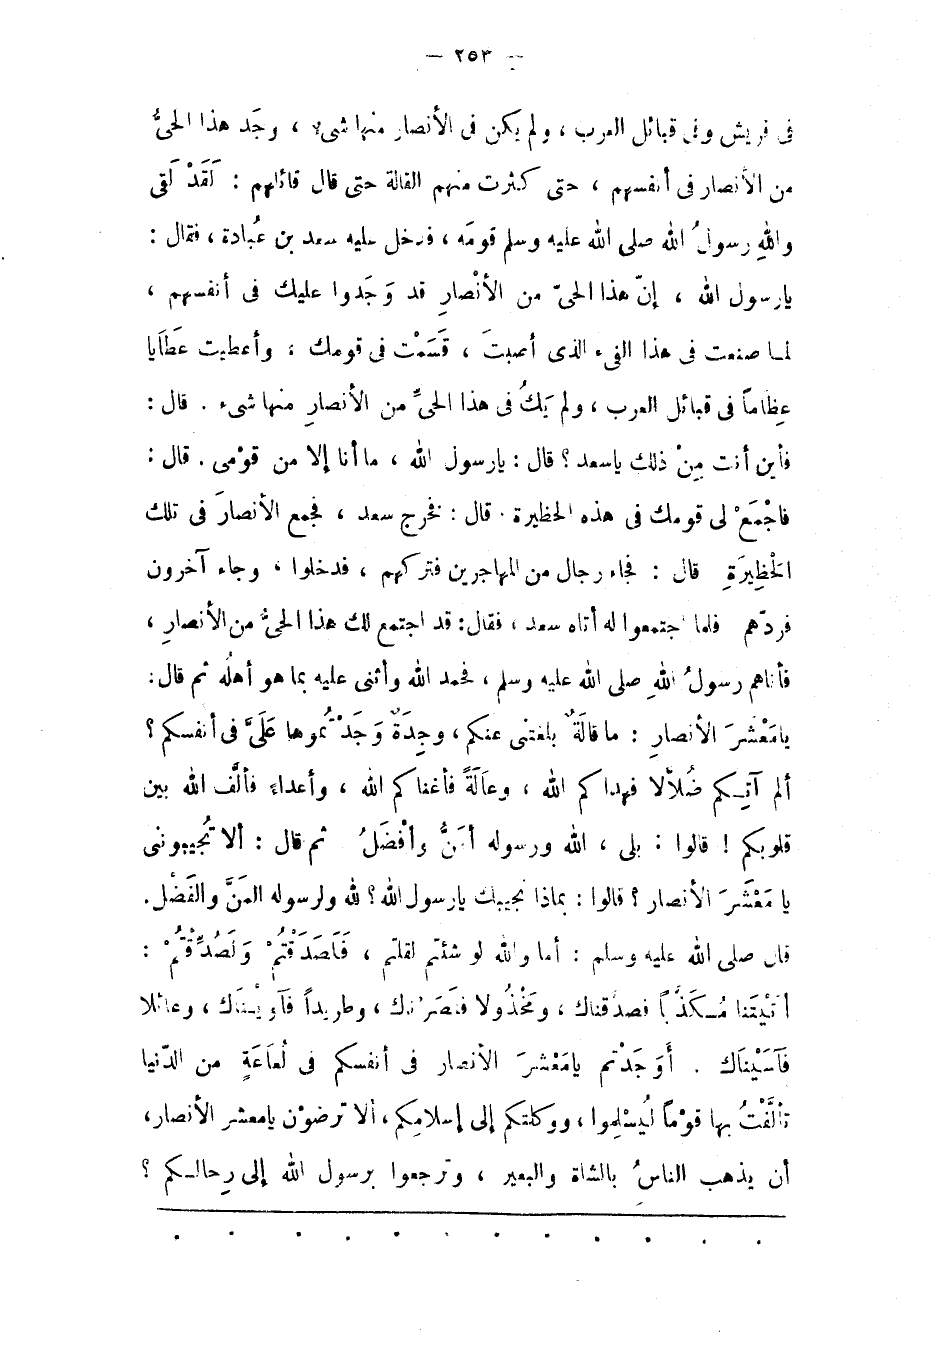 — ٢٥٣ —
فى قريش وفى قبائل العرب ، ولم يكن فى الأنصار منها شىء ، وجَد هذا الحىُّ
من الأنصار فى أنفسهم ، حتى كثرت منهم القالة حتى قال قائلهم : لَقَدْ لَقى
واللهِ رسولُ الله صلى الله عليه وسلم قومَه ، فدخل عليه سعد بن عُبادة ، فقال :
يارسول الله ، إنّ هذا الحىّ من الأنْصارِ قد وَجَدوا عليك فى أنفسهم ،
لما صنعت فى هذا الفىء الذى أصبتَ ، قَسَمْت فى قومك ، وأعطيت عَطَايا
عِظاماً فى قبائل العرب ، ولم يَكُ فى هذا الحىِّ من الأنصارِ منها شىء . قال :
فأين أنت مِنْ ذلك ياسعد ؟ قال : يارسول الله ، ما أنا إلا من قوْمى . قال :
فاجْمَعْ لى قومك فى هذه الحظيرة . قال : فخرج سعد ، فجمع الأنصارَ فى تلك
الحْظِيرَةِ قال : فجاء رجال من المهاجرين فتركهم ، فدخلوا ، وجاء آخرون
فردّهم فلما اجتمعوا له أتاه سعد ، فقال : قد اجتمع لك هذا الحىُّ من الأنصارِ ،
فأتاهم رسولُ اللهِ صلى الله عليه وسلم ، فحمد الله وأثنى عليه بما هو أهلُه ثم قال :
يامَعْشَرَ الأنصارِ : ما قالَةٌ بلغتنى عنكم ، وجِدَةٌ وَجَدْتُموها عَلَىَّ فى أنفسكم ؟
ألم آتِكم ضُلاَّلا فهداكم الله ، وعَالَةً فأغناكم الله ، وأعداء فألَّف الله بين
قلوبكم ! قالوا : بلى ، الله ورسوله أمَنُّ وأفْضَلُ ثم قال : ألا تُجيبونى
يا مَعْشَرَ الأنصار ؟ قالوا : بماذا نجيبك يارسول الله ؟ لله ولرسوله المَنَّ والفَضْل .
قال صلى الله عليه وسلم : أما والله لو شئتم لقلتم ، فَلَصَدَقْتُمْ وَلَصُدِّقْتُمْ :
أتَيْتَنا مُكَذَّباً فصدقناك ، ومَخْذُولا فنَصَرْناك ، وطريداً فآويْناك ، وعائلا
فَآسَيْنَاك . أَوَجَدْتم يامَعْشرَ الأنصار فى أنفسكم فى لُعَاعَةٍ من الدّنيا
تألَّفْتُ بها قوْماً ليُسْلِموا ، ووكلتكم إلى إسلامِكم ، ألا ترضوْن يامعشر الأنصار ،
أن يذهب الناسُ بالشاة والبعير ، وترجعوا برسول الله إلى رِحالكم ؟